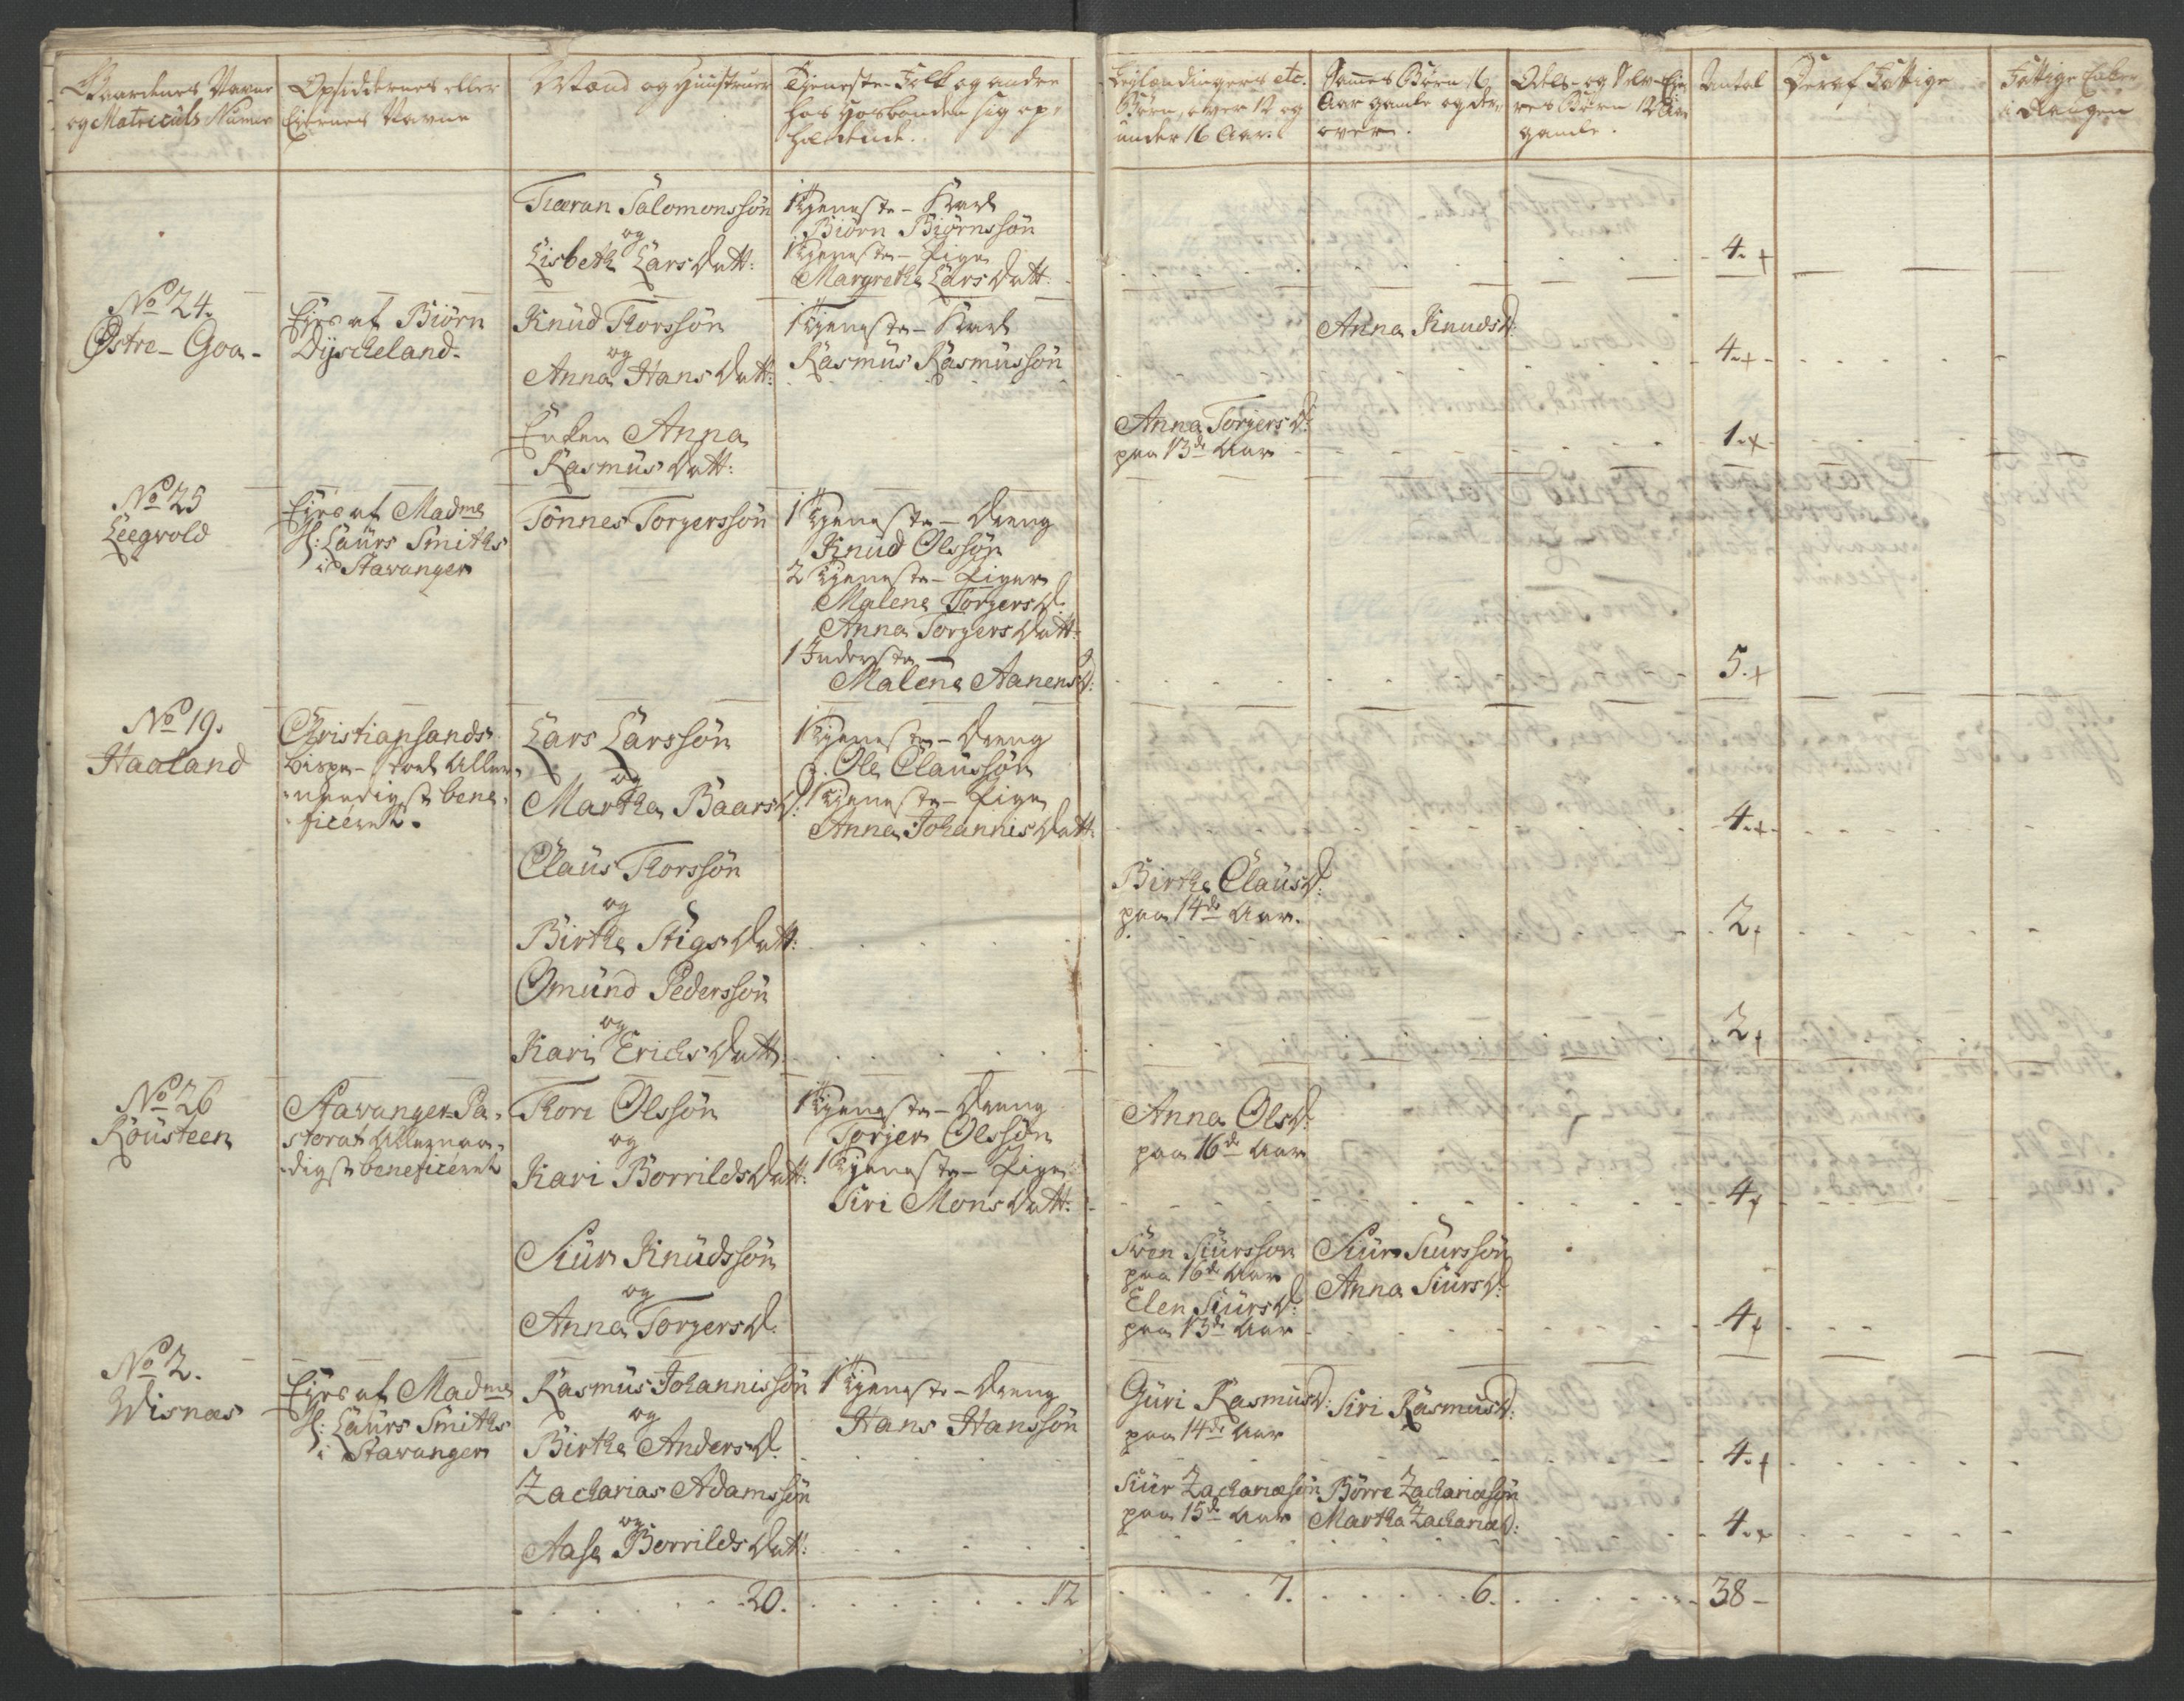 Gaardenes Navne
og Matriculs Numr
Opsiddernes eller
Eiernes Navne
Mænd og Hustruer
Tieneste-Folk og andre
hos Hosbonden sig op-
holdende.
Leylændingers etc.
Børn, over 12 og
under 16 Aar.
Sames Børn 16
Aar gamle og der-
over.
Odels- og Selv-Eje-
res Børn 12 Aar
gamle.
Antal
Deraf Fattige
Fattige Enker
i Laugen
Tiæran Salomonssøn
og
Lisbeth LarsDatt:
1 Tieneste-Karl
Biørn Biørnssøn
1 Tieneste-Pige
Margrethe LarsDatt:
4.+
No 24.
Østre-Goa-
Eies af Biørn
Dyscheland.
Knud Thorssøn
og
Anna HansDatt:
1 Tieneste-Karl
Rasmus Rasmussøn
Anna KnudsD:
4.+
Enken Anna
RasmusDatt:
Anna TorgersD:
paa 13de Aar
1.+
No 25
Leegvold
Eies af Madme
Sl: Laurs Smiths
i Stavanger
Tønnes Torgerssøn
1 Tieneste-Dreng
Knud Olssøn
2 Tieneste-Piger
Malene TorgersD.
Anna TorgersDatt:
1 Inderste
Malene AanensD:
5.+
No 19.
Haaland
Christiansands
Bispe-Stoel Aller-
naadigst bene-
ficeret.
Lars Larssøn
og
Martha BaarsD:
1 Tieneste-Dreng
Ole Claussøn
1 Tieneste-Pige
Anna JohannisDatt:
4.+
Claus Thorssøn
og
Birthe StigsDatt:
Birthe ClausD:
paa 14de Aar.
2+
Omund Pederssøn
og
Kari ErichsDatt:
2+
No 26
Rousteen
Stavanger Pa-
storat Allernaa-
digst beneficeret
Thore Olssøn
og
Kari BorrildsDatt:
1 Tieneste-Dreng
Torjer Olssøn
1 Tieneste-Pige
Siri MonsDatt:
Anna OlsD:
paa 16de Aar
4+
Siur Knudssøn
og
Anna TorgersD.
Sven Siurssøn
paa 16de Aar
Elen SiursD:
paa 13de Aar
Siur Siurssøn
Anna SiursD:
4+
No 2.
Wisnæs
Eies af Madme
Sl: Laurs Smiths
i Stavanger
Rasmus Johannissøn
og
Birthe AndersD.
1 Tieneste-Dreng
Hans Hanssøn
Guri RasmusD:
paa 14de Aar
Siri RasmusD:
4.+
Zacharias Adamssøn
og
Aase BorrildsDat:
Siur Zachariæsøn
paa 15de Aar
Børre Zachariæsøn
Martha ZachariæD:
4.+
20.
12
7.
6.
38-